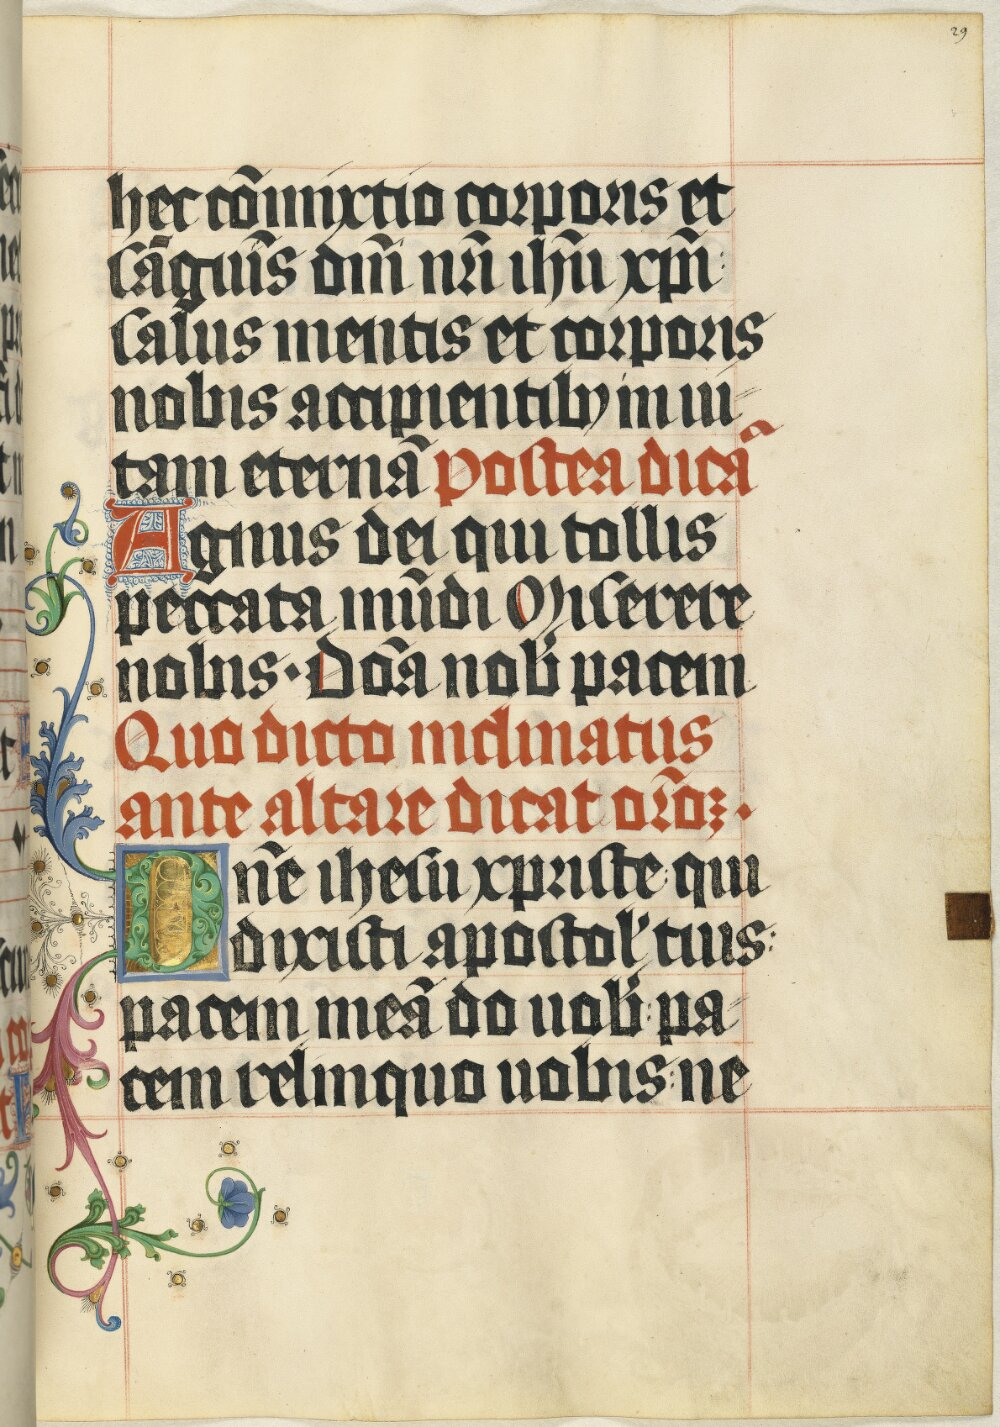 29
hec cōmixtio corporis et
sāguīs dnī nrī ihū xpī:
salus mentis et corporis
nobis accipientibꝫ in ui-
tam eternā Postea dicā
Agnus dei qui tollis
peccata mūdi Miserere
nobis· Doā nob̄ pacem
Quo dicto inclinatus
ante altare dicat orōꝫ·
Dn̄e ihesu xpriste: qui
dixisti apostol' tuis:
pacem meā do uob̄: pa-
cem relinquo uobis: ne